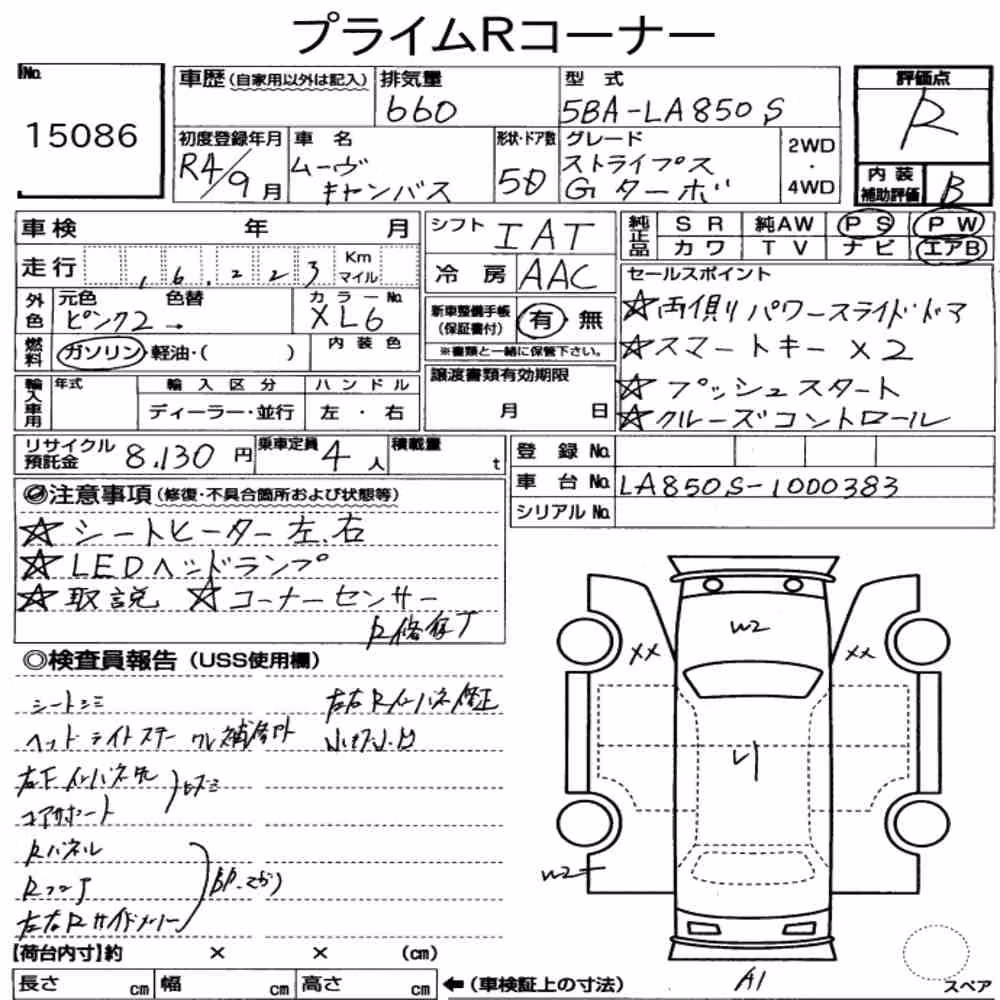 プライムRコーナー
No. 15086
車歴(自家用以外は記入)
排気量 660
型式 5BA-LA850S
評価点 R
初度登録年月 R4/9月
車名 ムーヴ キャンバス
形状・ドア数 5D
グレード ストライプス Gターボ
2WD・4WD
内装補助評価 B
車検 年 月
シフト IAT
純正品 SR 純AW PS PW
カワ TV ナビ エアB
走行 16,223 Km マイル
冷房 AAC
セールスポイント
外色 元色 色替 ピンク2→
カラーNo. XL6
新車整備手帳(保証書付) 有・無
※書類と一緒に保管下さい。
☆両側パワースライドドア
☆スマートキー×2
☆プッシュスタート
☆クルーズコントロール
燃料 ガソリン・軽油・( )
内装色
譲渡書類有効期限
月 日
輸入車用 年式 輸入区分 ハンドル
ディーラー・並行 左・右
リサイクル預託金 8,130円
乗車定員 4人
積載量 t
登録No.
車台No. LA850S-1000383
シリアルNo.
◎注意事項(修復・不具合箇所および状態等)
☆シートヒーター左、右
☆LEDヘッドランプ
☆取説 ☆コーナーセンサー
◎検査員報告(USS使用欄)
シートシミ
左右Rインパネ修正
ヘッドライトステー
コアサポート
Rパネル
Rフロア
左右Rサイドメンバー
W2
XX
XX
W2
A1
【荷台内寸】約 × × (cm)
長さ cm 幅 cm 高さ cm
←(車検証上の寸法)
スペア